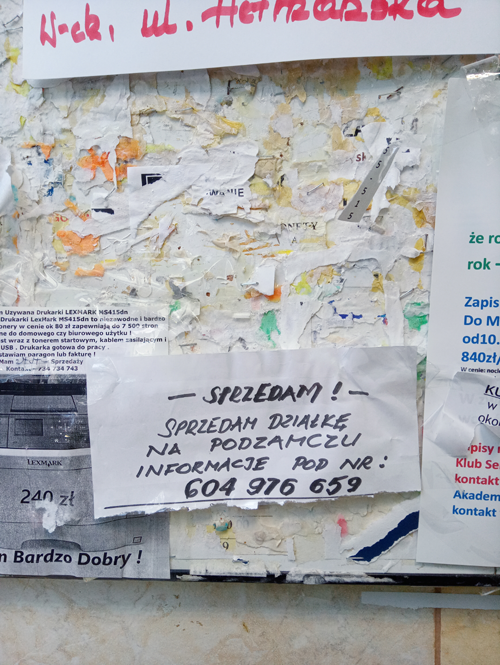 W-ck, ul. Hetmańska
WANIE
RNETY
A
SIS
że ro
rok -
Zapis
Do M
od10.
840zł/
W cenie: nocl
w
okol
opisy
Klub Se
kontakt
Akadem
kontakt
m Używana Drukarki LEXMARK MS415dn
Drukarki LexMark MS415dn to niezawodne i bardzo
onery w cenie ok 80 zł zapewniają do 7 500 stron
se do domowego czy biurowego użytku !
est wraz z tonerem startowym, kablem zasilającym i
USB . Drukarka gotowa do pracy .
stawiam paragon lub fakturę !
Mam Sprzedaty
Kontakt 734 734 743
LEXMARK
240 zł
n Bardzo Dobry !
— SPRZEDAM ! —
SPRZEDAM DZIAŁKĘ
NA PODZAMCZU
INFORMACJE POD NR :
604 976 659
9